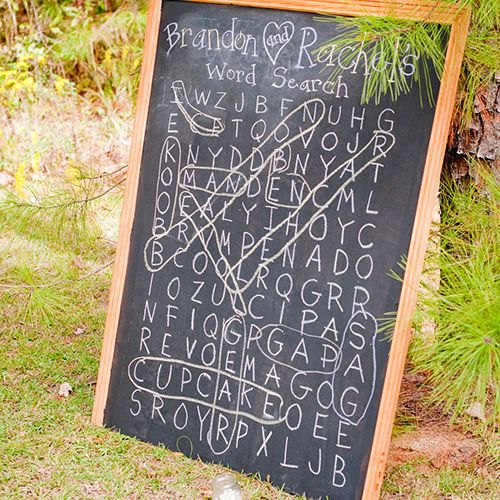 Brandon and Rachel's
Word Search
W Z J B F N U H G
E T Q O V O J R
K N Y D D B N Y A T
O M A N D E N C M L
O E A L Y I H O Y C
B R A M P E N A D O
B C O L R Q G R R
I O Z U C I P A S
N F I Q G R G A P A
R E V O E M A G O G
C U P C A K E O E E
S R O Y R P X L J B